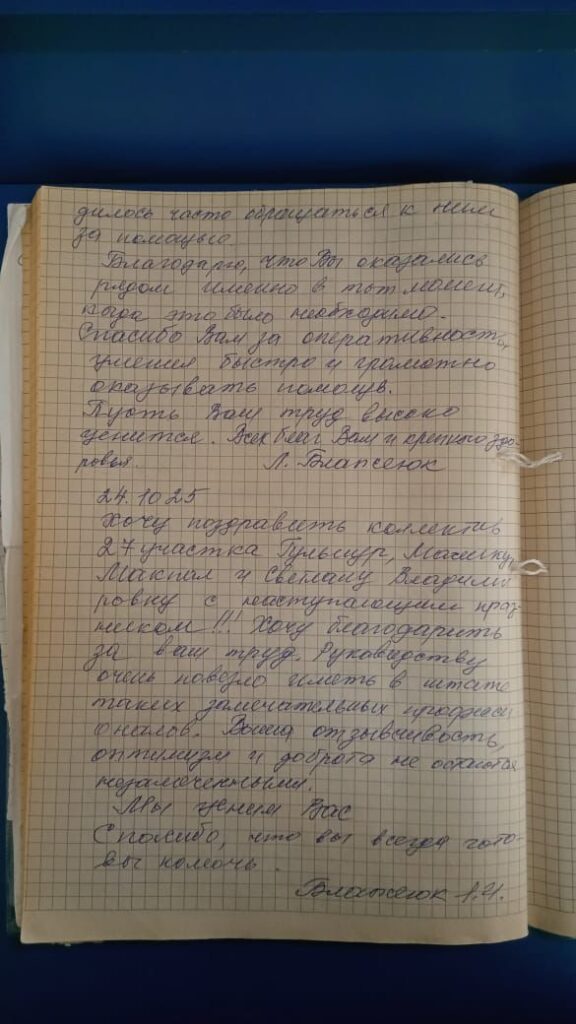 дилось часто обращаться к ним
за помощью.
Благодарю, что Вы оказались
рядом именно в тот момент,
когда это было необходимо.
Спасибо Вам за оперативность,
умения быстро и грамотно
оказывать помощь.
Пусть Ваш труд высоко
ценится. Всех благ Вам и крепкого здо-
ровья. Л.
24.10 25
Хочу поздравить коллектив
27 участка Гульнур,
Макпал и Светлану Владими
ровну с наступающим праз-
ником!!! Хочу благодарить
за ваш труд. Руководству
очень повезло иметь в штате
таких замечательных професси
оналов. Ваша отзывчивость,
оптимизм и доброта не остаются
незамеченными.
Мы ценим Вас
Спасибо, что вы всегда гото-
вы помочь.